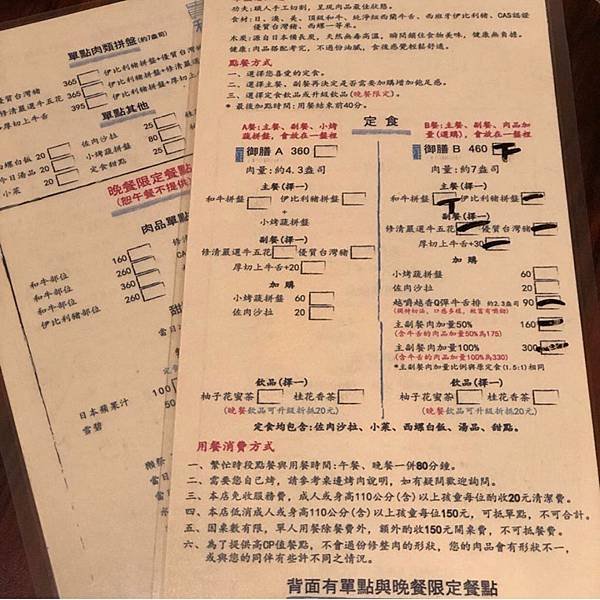 功夫:職人手工切割,呈現肉品最佳狀態。
食材:日、澳、美、頂級和牛、純淨紐西蘭牛舌、西班牙伊比利豬、CAS認證
優質台灣豬、西螺一等米。
木炭:源自日本備長炭,天然無毒高溫,瞬間鎖住食物美味,健康無負擔。
健康:肉品搭配考究,不過份油膩,食後感覺輕鬆舒適。
點餐方式
一、選擇您喜愛的定食。
二、選擇主餐、副餐再決定是否需要加購增加飽足感。
三、選擇定食飲品或升級飲品(晚餐限定)。
* 最後加點時間:用餐結束前40分。
定食
A餐:主餐、副餐、小烤
蔬拼盤,會放在一盤裡
御膳 A 360
肉量:約4.3盎司
主餐(擇一)
和牛拼盤 伊比利豬拼盤
+
小烤蔬拼盤
副餐(擇一)
修清嚴選牛五花 優質台灣豬
厚切上牛舌+20
加購
小烤蔬拼盤 60
佐肉沙拉 20
飲品(擇一)
柚子花蜜茶 桂花香茶
(晚餐飲品可升級折抵20元)
B餐:主餐、副餐、肉品加
量(選購),會放在一盤裡
御膳 B 460
肉量:約7盎司
主餐(擇一)
和牛拼盤 伊比利豬拼盤
副餐(擇一)
修清嚴選牛五花 優質台灣豬
厚切上牛舌+30
加購
小烤蔬拼盤 60
佐肉沙拉 20
越嚼越香Q彈牛舌排 約2.3盎司 90
主副餐肉加量50% 160
(含牛舌的肉品加量50%為175)
主副餐肉加量100% 300
(含牛舌的肉品加量100%為330)
*主副餐肉加量比例與原定食(1.5:1)相同
飲品(擇一)
柚子花蜜茶 桂花香茶
(晚餐飲品可升級折抵20元)
定食均包含:佐肉沙拉、小菜、西螺白飯、湯品、甜點。
用餐消費方式
一、繁忙時段點餐與用餐時間:午餐、晚餐一併80分鐘。
二、需要您自己烤,請參考桌邊烤肉說明,如有疑問歡迎詢問。
三、本店免收服務費,成人或身高110公分(含)以上孩童每位酌收20元清潔費。
四、本店低消成人或身高110公分(含)以上孩童每位150元,可抵單點,不可合計。
五、因桌數有限,單人用餐除餐費外,額外酌收150元開桌費,不可抵餐費。
六、為了提供高CP值餐點,不會過份修整肉的形狀,您的肉品會有形狀不一,
或與您的同伴有些許不同之情況。
背面有單點與晚餐限定餐點
單點肉類拼盤(約7盎司)
優質台灣豬 365 伊比利豬拼盤+優質台灣
修清嚴選牛五花 365 伊比利豬拼盤+修清嚴
厚切上牛舌 395 伊比利豬拼盤+厚切上牛
單點其他
西螺白飯 20 佐肉沙拉 25
今日湯品 20 小烤蔬拼盤 80
小菜 20 定食甜點 25
晚餐限定餐點
(恕午餐不提供)
肉品單點
和牛部位 160
和牛部位 260
和牛部位 360
伊比利豬部位 260
日本蘋果汁 100
雪碧